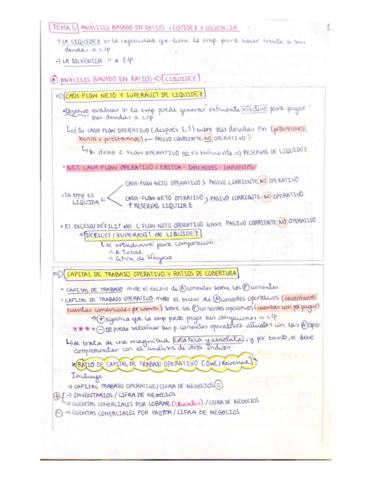 TEMA 5: ANÁLISIS BASADO EN RATIOS LIQUIDEZ Y SOLVENCIA
1
→ LA LIQUIDEZ es la capacidad que tiene la emp para hacer frente a sus
deudas a c/p
→ LA SOLVENCIA " a l/p
ANÁLISIS BASADO EN RATIOS LIQUIDEZ
CASH-FLOW NETO Y SUPERAVIT DE LIQUIDEZ
• Objetivo evaluar si la emp puede generar suficiente efectivo para pagar
sus deudas a c/p
↳ ¿Su CASH FLOW OPERATIVO (después I,T) cubre sus deudas fin (
bonos o préstamos) ← PASIVO CORRIENTE NO OPERATIVO?
↳ Si dicho C FLOW OPERATIVO no es suficiente ⇒ RESERVAS DE LIQUIDEZ
• NET CASH-FLOW OPERATIVO = EBITDA - INTERESES - IMPUESTOS
• La emp es LIQUIDA si
CASH-FLOW NETO OPERATIVO > PASIVO CORRIENTE NO OPERATIVO
CASH-FLOW NETO OPERATIVO > PASIVO CORRIENTE NO OPERATIVO
+ RESERVAS LIQUIDEZ
• El EXCESO/DÉFICIT del C FLOW NETO OPERATIVO sobre PASIVO CORRIENTE NO OPERATIVO
= DÉFICIT/SUPERAVIT DE LIQUIDEZ
↳ se estandariza para comparación
÷ A Total
÷ Cifra de Negocio
CAPITAL DE TRABAJO OPERATIVO Y RATIOS DE COBERTURA
• CAPITAL DE TRABAJO mide el exceso de A corrientes sobre los P corrientes
• CAPITAL DE TRABAJO OPERATIVO mide el exceso de A corrientes operativos (inventarios,
cuentas comerciales por cobrar) sobre los P corrientes operativos (cuentas com por pagar)
* + significa que la emp puede pagar sus obligaciones a c/p
*** - no puede satisfacer sus p corrientes operativos actuales con los A oper
↳ Se trata de una magnitud estática y, por tanto, se debe
complementar con el análisis de otros indic
RATIO DE CAPITAL DE TRABAJO OPERATIVO (OWC/Revenue)
Incluye
→ CAPITAL TRABAJO OPERATIVO/CIFRA DE NEGOCIOS =
+ → INVENTARIOS / CIFRA DE NEGOCIO
→ CUENTAS COMERCIALES POR COBRAR (clientes) / CIFRA DE NEGOCIOS
- → CUENTAS COMERCIALES POR PAGAR / CIFRA DE NEGOCIOS